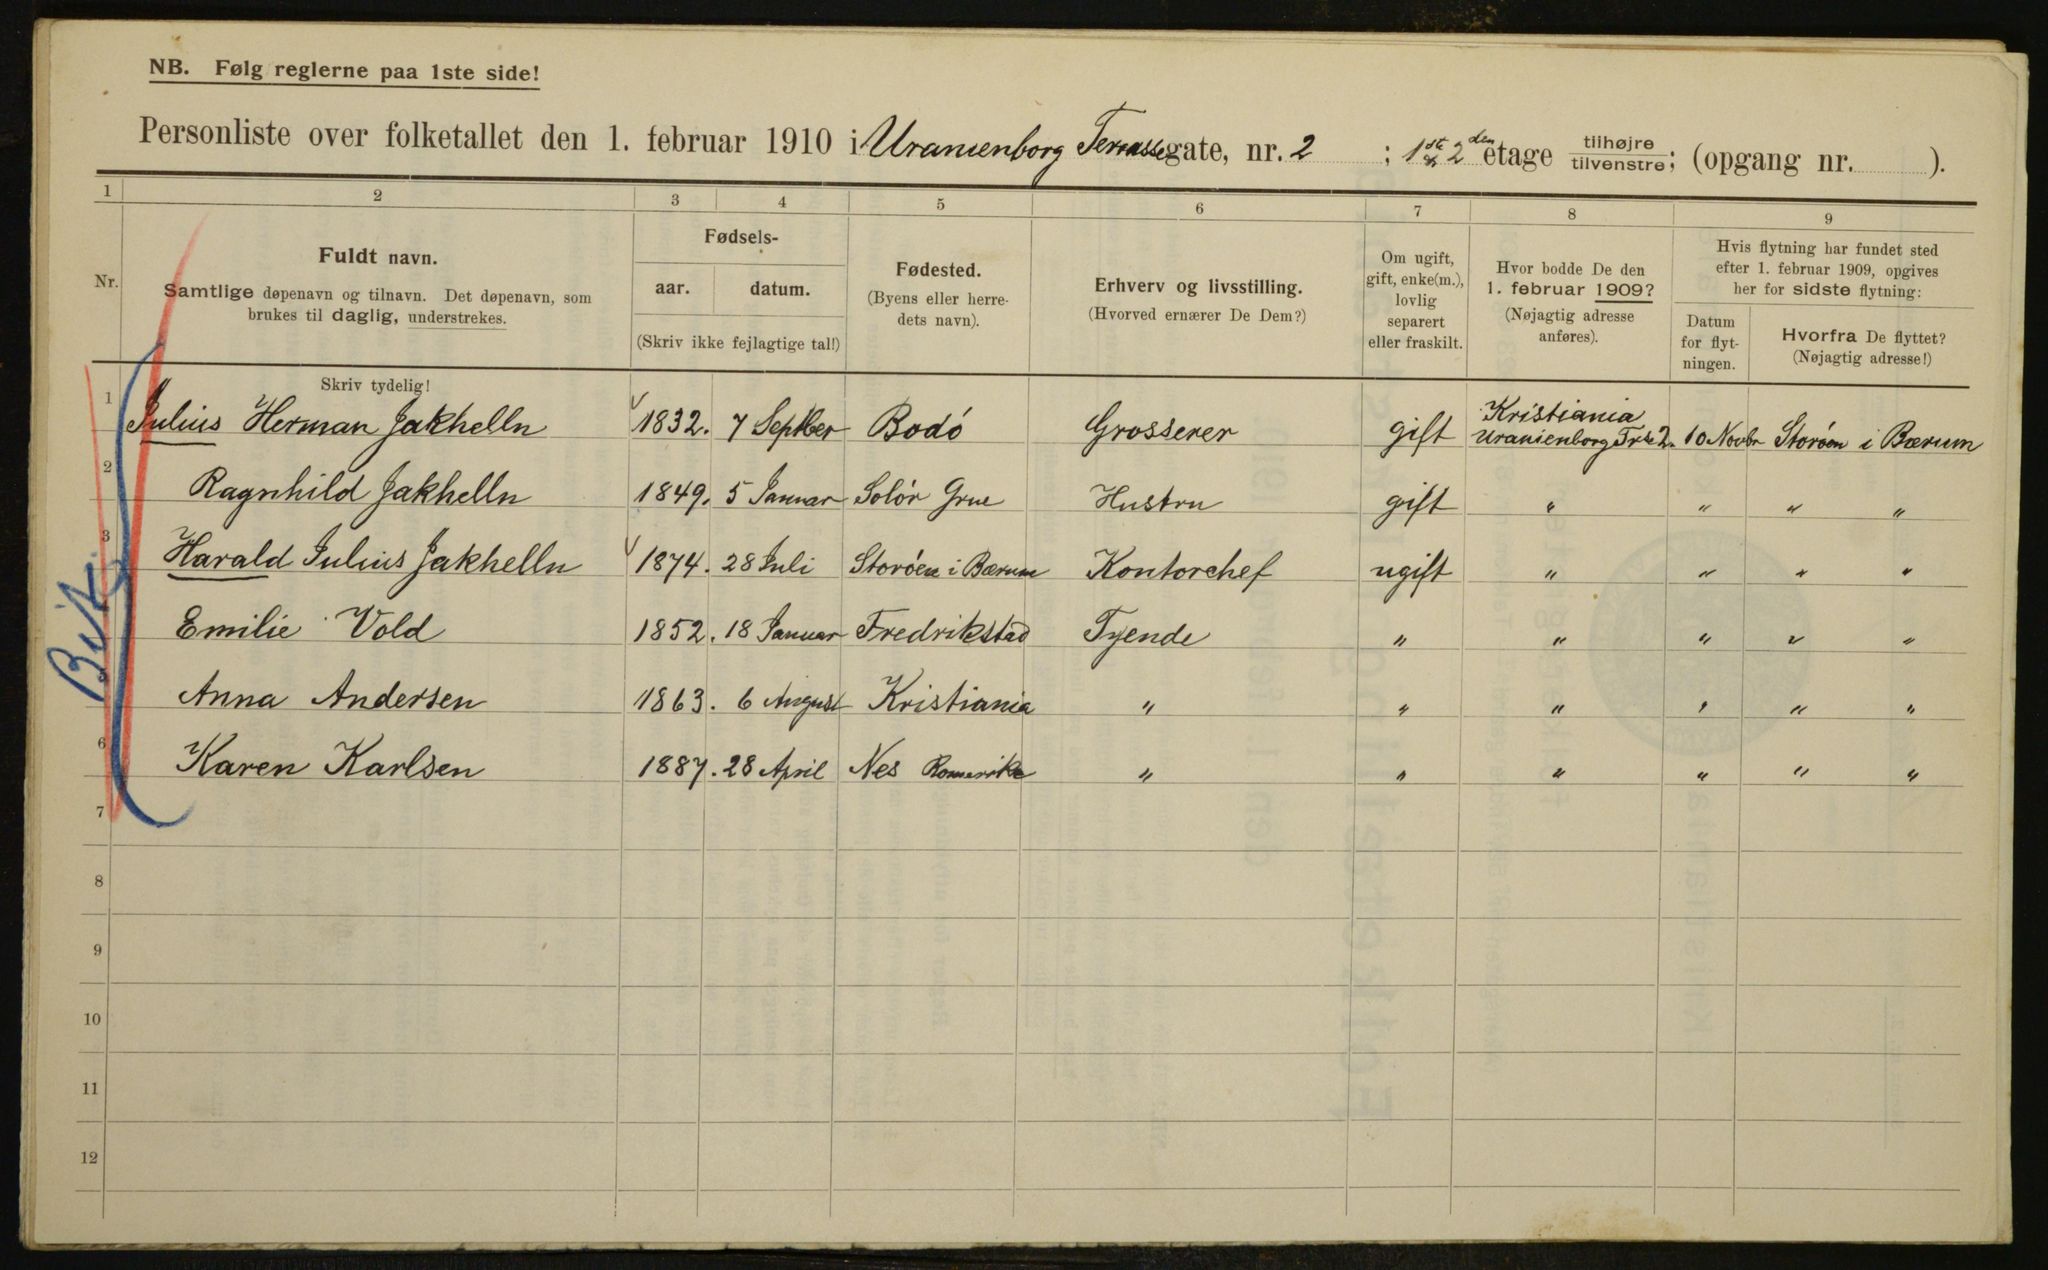 NB. Følg reglerne paa 1ste side!
Personliste over folketallet den 1. februar 1910 i Uranienborg Terrassegate, nr. 2 ; 1ste & 2den etage tilhøjre / tilvenstre; (opgang nr. ).
1 2 3 4 5 6 7 8 9
Nr. Fuldt navn. Samtlige døpenavn og tilnavn. Det døpenavn, som brukes til daglig, understrekes. Skriv tydelig!
Fødsels- aar. datum. (Skriv ikke fejlagtige tal!)
Fødested. (Byens eller herredets navn).
Erhverv og livsstilling. (Hvorved ernærer De Dem?)
Om ugift, gift, enke(m.), lovlig separert eller fraskilt.
Hvor bodde De den 1. februar 1909? (Nøjagtig adresse anføres).
Hvis flytning har fundet sted efter 1. februar 1909, opgives her for sidste flytning:
Datum for flytningen. Hvorfra De flyttet? (Nøjagtig adresse!)
1 Julius Herman Jakhelln 1832. 7 Septber Bodó Grosserer gift Kristiania Uranienborg Trse 2. 10 Novbr Storöen i Bærum
2 Ragnhild Jakhelln 1849. 5 Januar Solör Grue Hustru gift " " " "
3 Harald Julius Jakhelln 1874. 28 Juli Storöen i Bærum Kontorchef ugift " " " "
Emilie Vold 1852. 18 Januar Fredrikstad Tyende " " " " "
Anna Andersen 1863. 6 August Kristiania " " " " " "
6 Karen Karlsen 1887. 28 April Nes Romerike " " " " " "
7
8
9
10
11
12